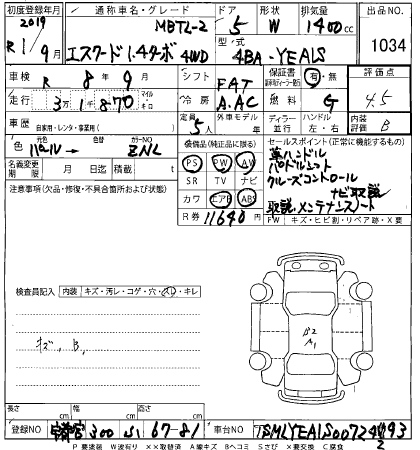 初度登録年月 通称車名・グレード ドア 形状 排気量 出品NO
2019 MBTL-2 5 W 1400cc 1034
R1 9月 エスクード1.4ターボ4WD 型式 4BA-YEA1S
車検 R 8年 9月 シフト FAT 保証書 有・無 評価点
走行 3万1870 マイル キロ 冷房 A.AC 燃料 G 4.5
車歴 自家用・レンタ・事業用( ) 定員 5人 外車モデル 年 ディーラー 並行 ハンドル 左・右 内装評価 B
色 パール→ 色替 カラーNO ZNL 装備品(純正品に限る) セールスポイント(正常に機能するもの)
名義変更期限 月 日迄 積載 t PS PW AW 革ハンドル
パドルシフト
注意事項(欠品・修復・不具合箇所および状態) SR TV ナビ クルーズコントロール
カワ エアB ABS ナビ取説
取説、メンテナンスノート
R券 11640円 FW キズ・ヒビ割・リペア跡・X要
検査員記入 内装 キズ・汚レ・コゲ・穴・スレ・キレ
キズ、B、
B2
A1
長さ cm 幅 cm 高さ cm
登録NO 宇都宮 300 67-81 車台NO TSMLYEA1S00724093
2
P 要塗装 W波有り ××取替済 A線キズ Bヘコミ Sさび ×要交換 C腐食